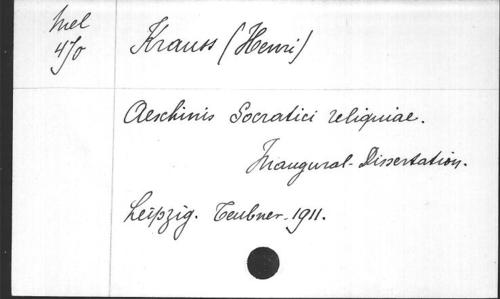 Mel
4/0
Krauss (Henri)
Aeschinis Socratici reliquiae.
Inaugural-Dissertation.
Leipzig. Teubner-1911.